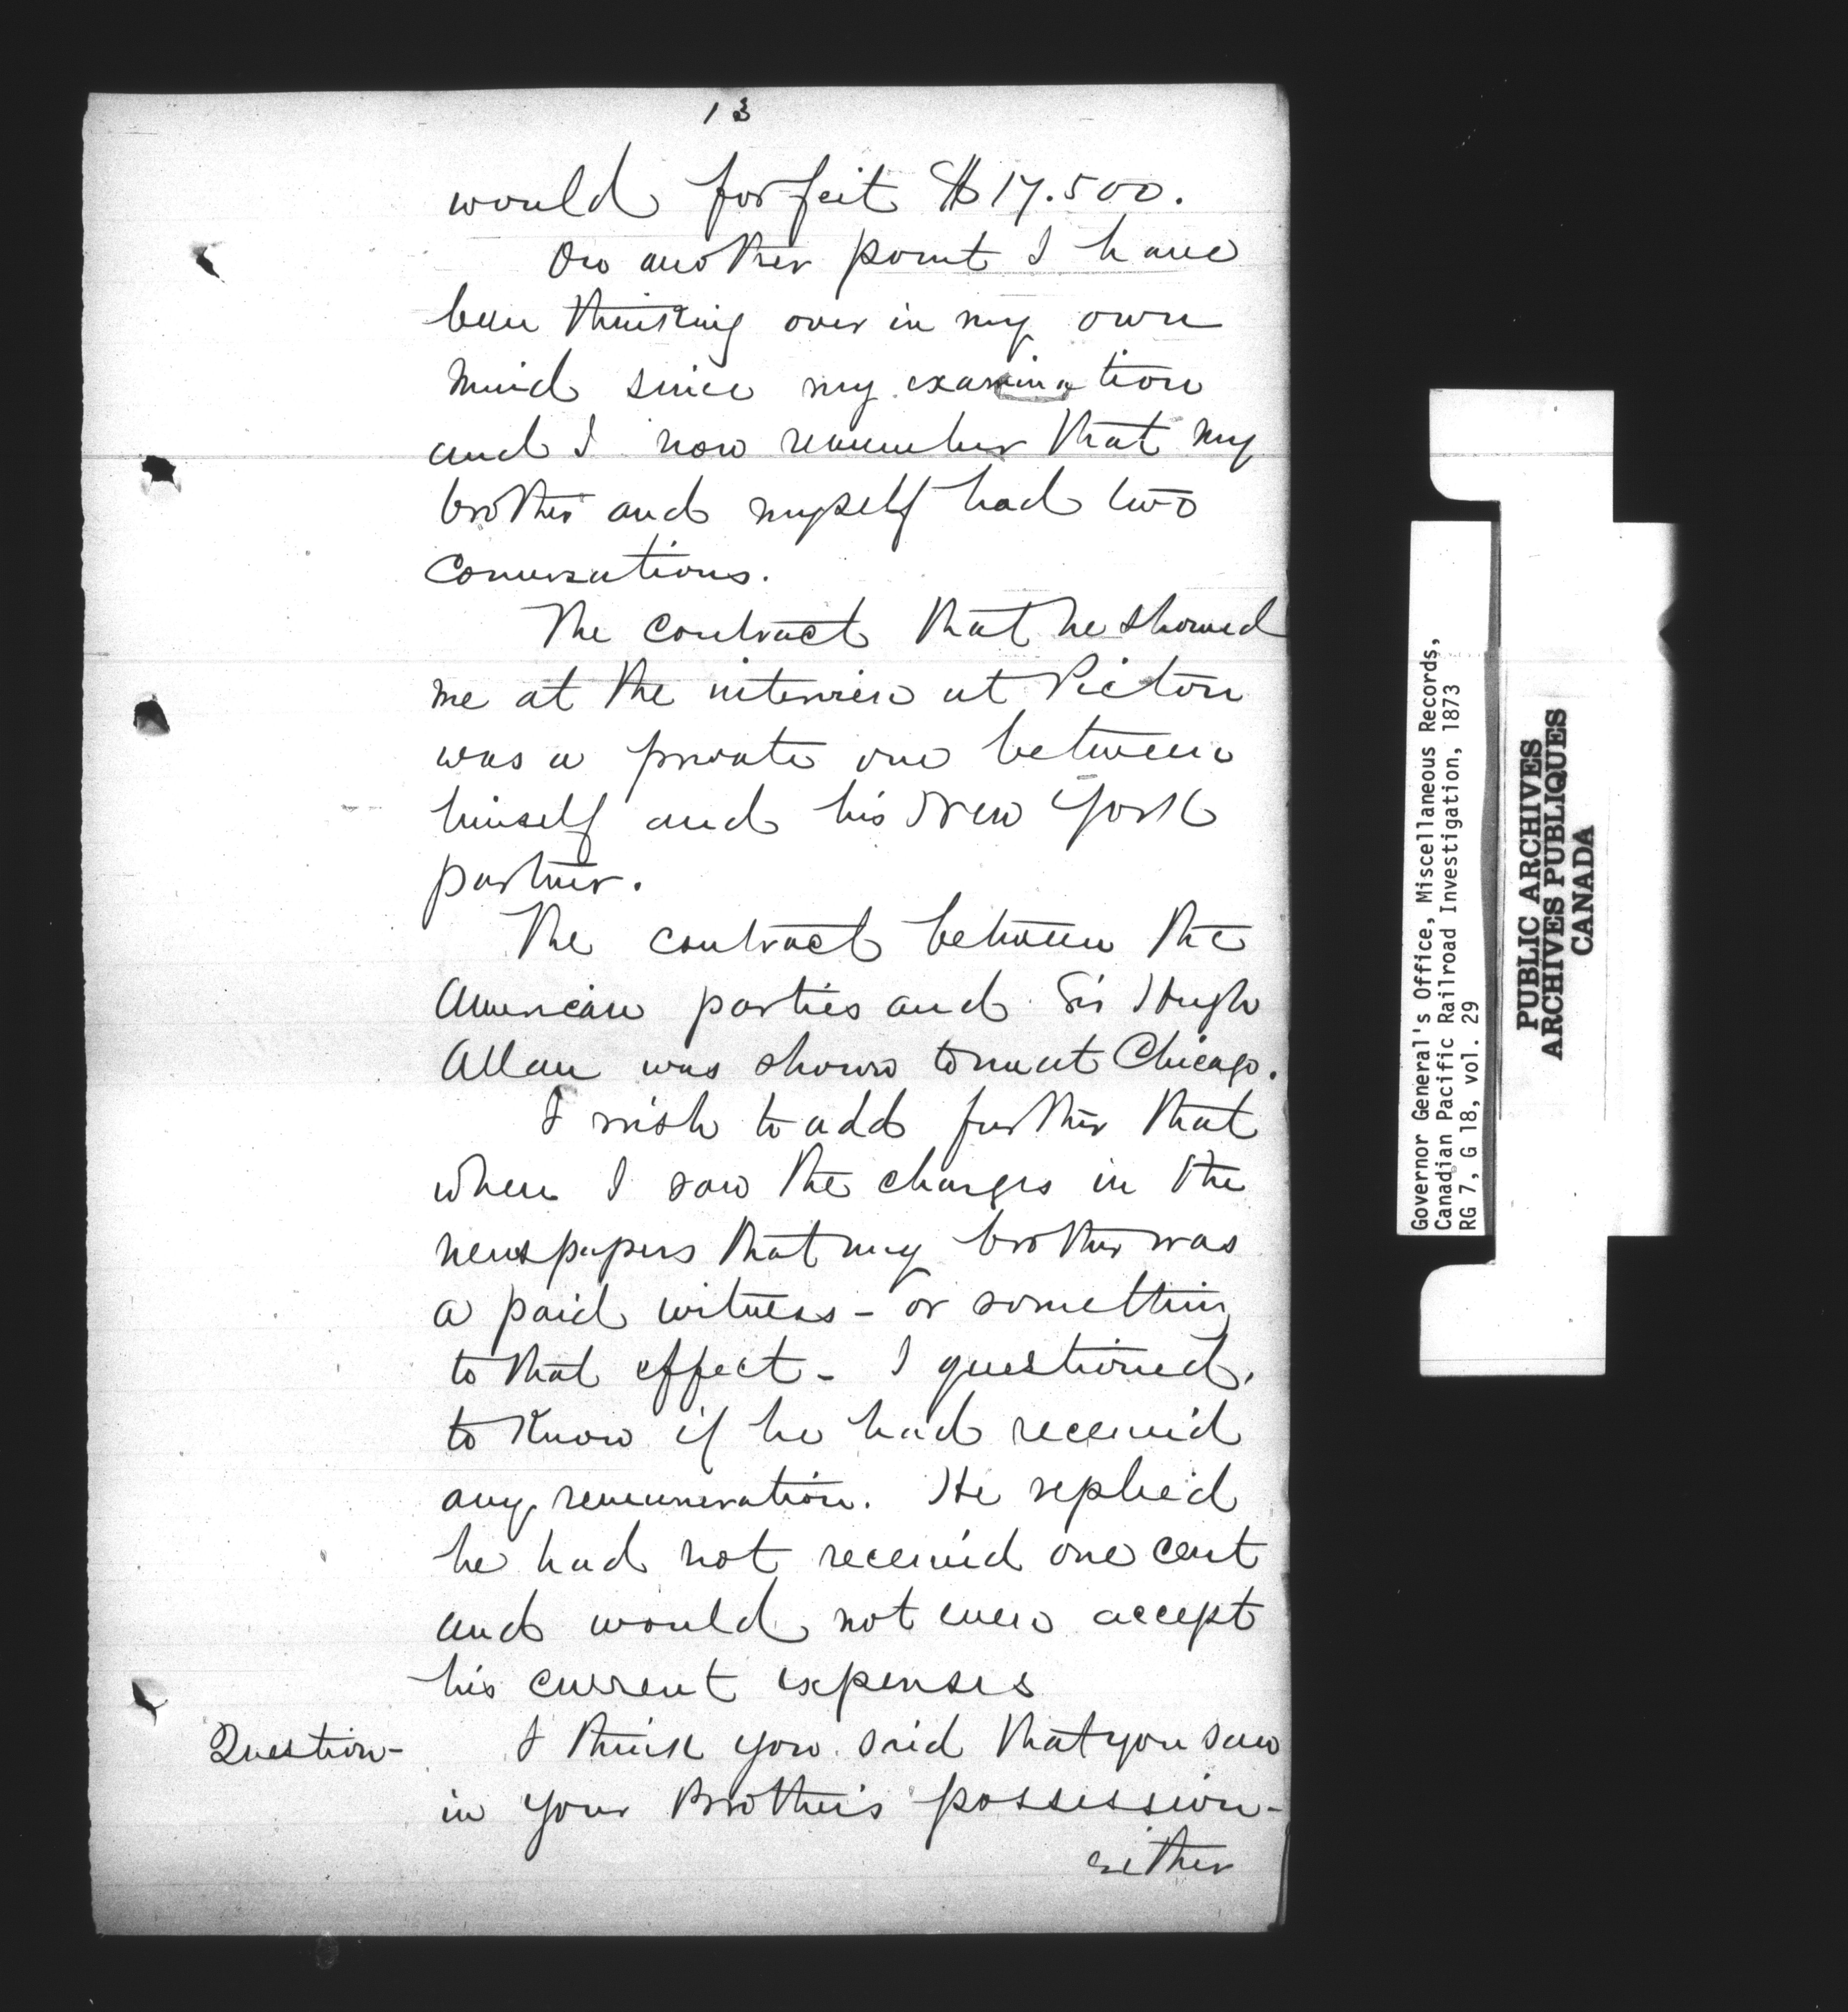 13
would forfeit $17.500.
On another point I have
been thinking over in my own
mind since my examination
and I now remember that my
brother and myself had two
conversations.
The contract that he showed
me at the interview at Picton
was a private one between
himself and his New York
partner.
The contract between the
American parties and Sir Hugh
Allan was shown to me at Chicago.
I wish to add further that
when I saw the charges in the
newspapers that my brother was
a paid witness - or something
to that effect - I questioned,
to know if he had received
any remuneration. He replied
he had not received one cent
and would not even accept
his current expenses
Question - I think you said that you saw
in your Brother's possession -
either
Governor General's Office, Miscellaneous Records,
Canadian Pacific Railroad Investigation, 1873
RG 7, G 18, vol. 29
PUBLIC ARCHIVES
ARCHIVES PUBLIQUES
CANADA